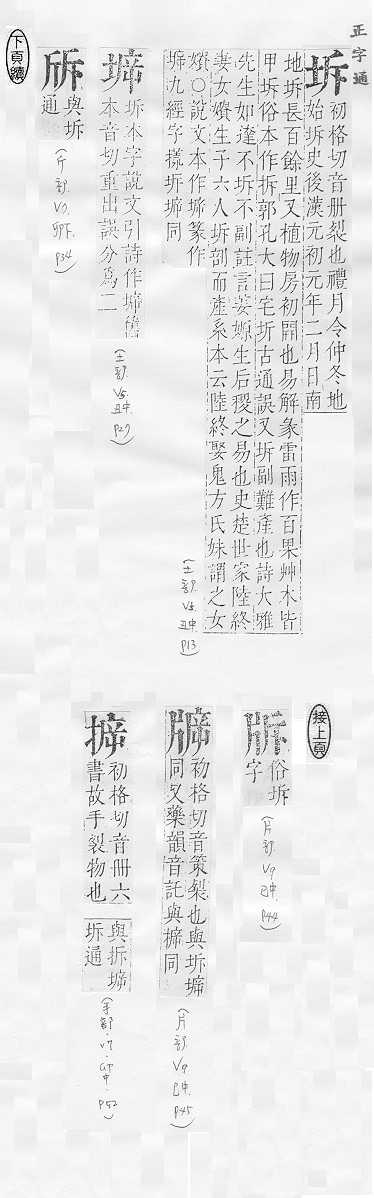 正字通
坼
初格切音冊裂也禮月令仲冬地
始坼史後漢元初元年二月日南
地坼長百餘里又植物房初開也易解彖雷雨作百果艸木皆
甲坼俗本作拆郭孔大曰宅坼古通誤又坼副難產也詩大雅
先生如達不坼不副註言姜嫄生后稷之易也史楚世家陸終
妻女嬇生子六人坼剖而產系本云陸終娶鬼方氏妹謂之女
嬇○說文本作㙤篆作
㙤九經字樣坼㙤同
(土部 V5 丑中 P13)
㙤
坼本字說文引詩作㙤舊
本音切重出誤分爲二
(土部 V5 丑中 P27)
與坼
通
下頁續
接上頁
俗坼
字
(片部 V9 巳中 P44)
初格切音策裂也與坼㙤
同又藥韻音託與㯊同
(片部 V9 巳中 P45)
初格切音冊六
書故手裂物也
與拆㙤
坼通
(手部 V7 卯中 P52)